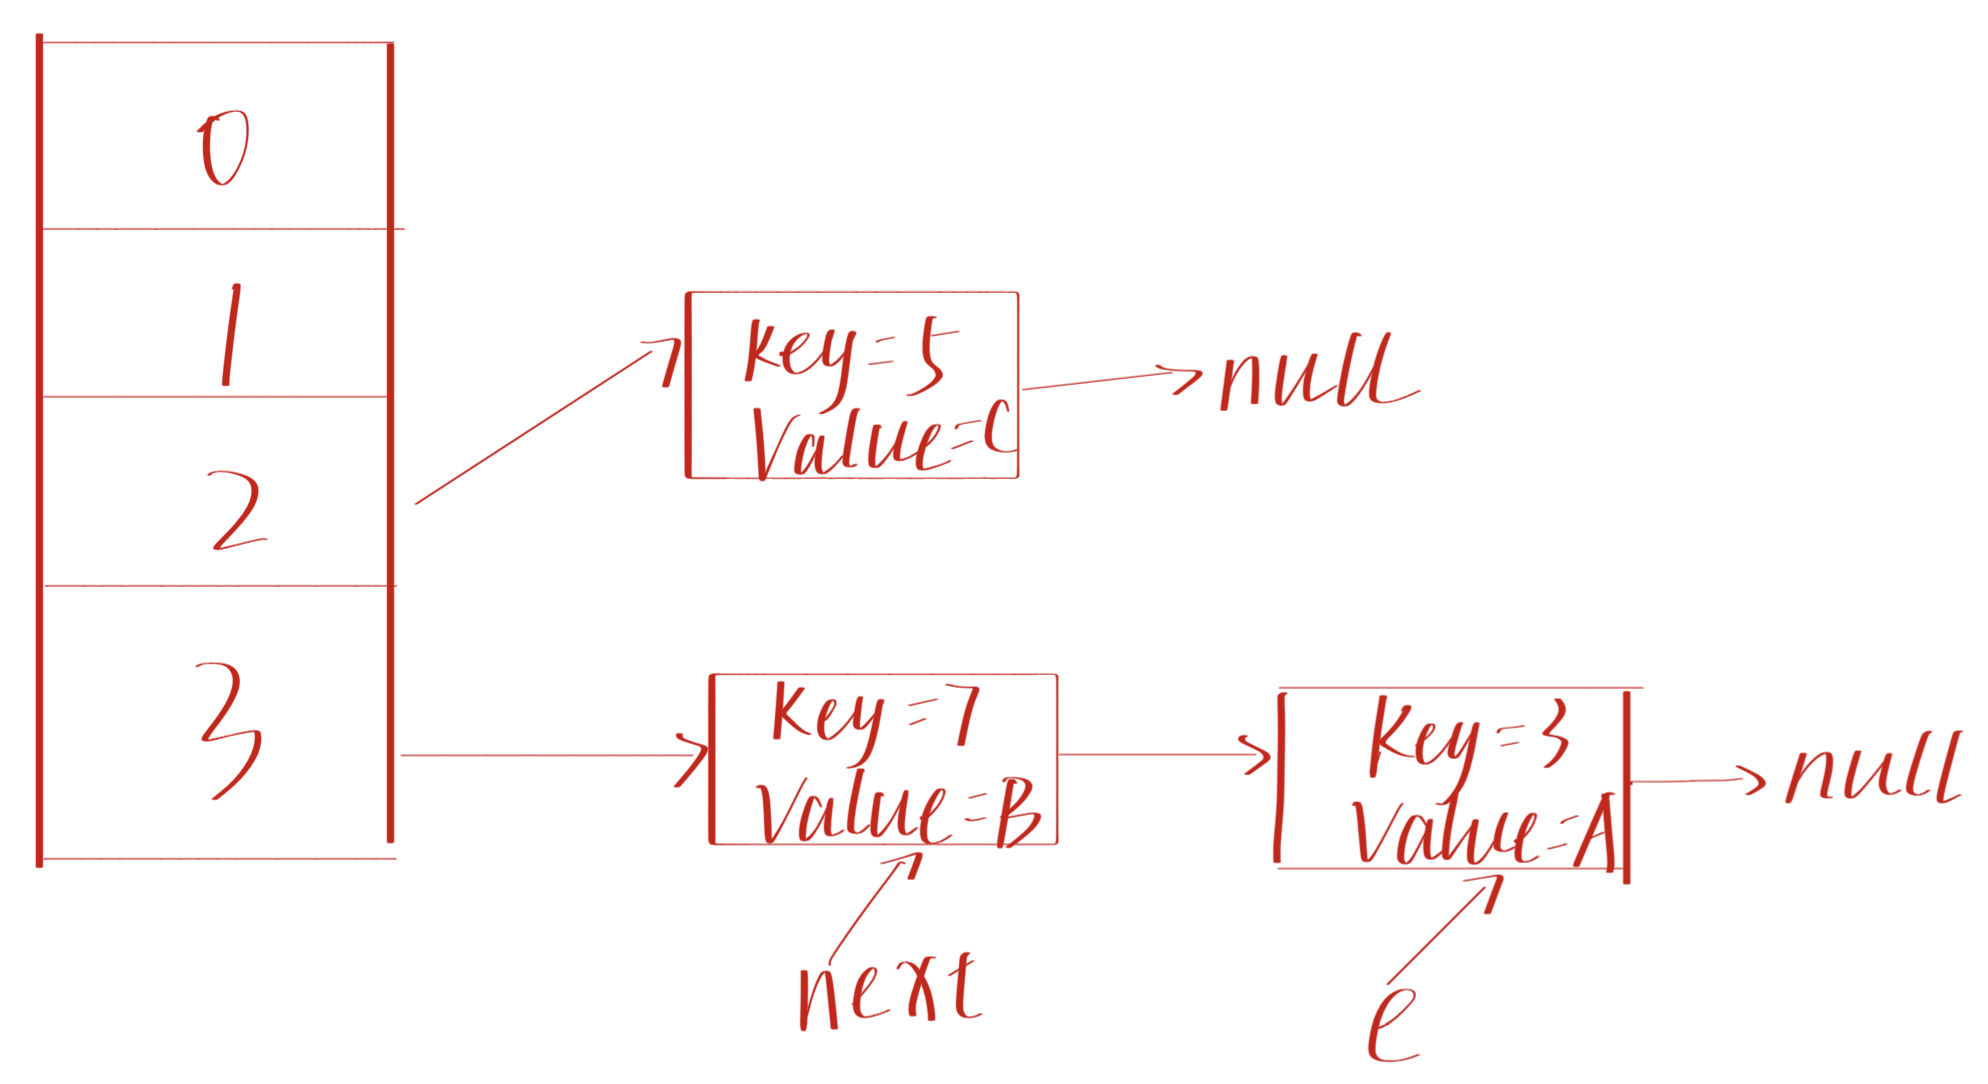 0
1
2
3
key=5
Value=C
null
key=7
Value=B
key=3
Value=A
null
next
e